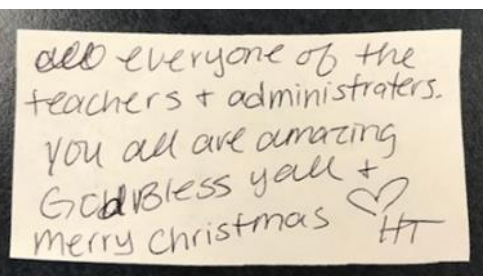 all everyone of the
teachers + administraters.
you all are amazing
God Bless yall +
merry christmas ♡ HT